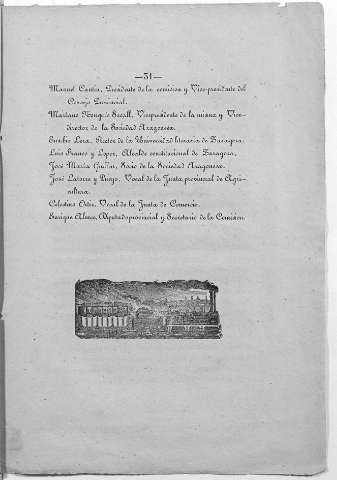 —31—
Manuel Cantin, Presidente de la comision y Vice-presidente del
Consejo Provincial.
Mariano Nougués Secall, Vicepresidente de la misma y Vice-
director de la Sociedad Aragonesa.
Eusebio Lera, Rector de la Universidad literaria de Zaragoza.
Luis Franco y Lopez, Alcalde constitucional de Zaragoza.
José Maria Socio de la Sociedad Aragonesa.
José Latorre y Vocal de la Junta provincial de Agri-
cultura.
Celestino Ortiz, Vocal de la Junta de Comercio.
Enrique Diputado provincial y Secretario de la Comision.